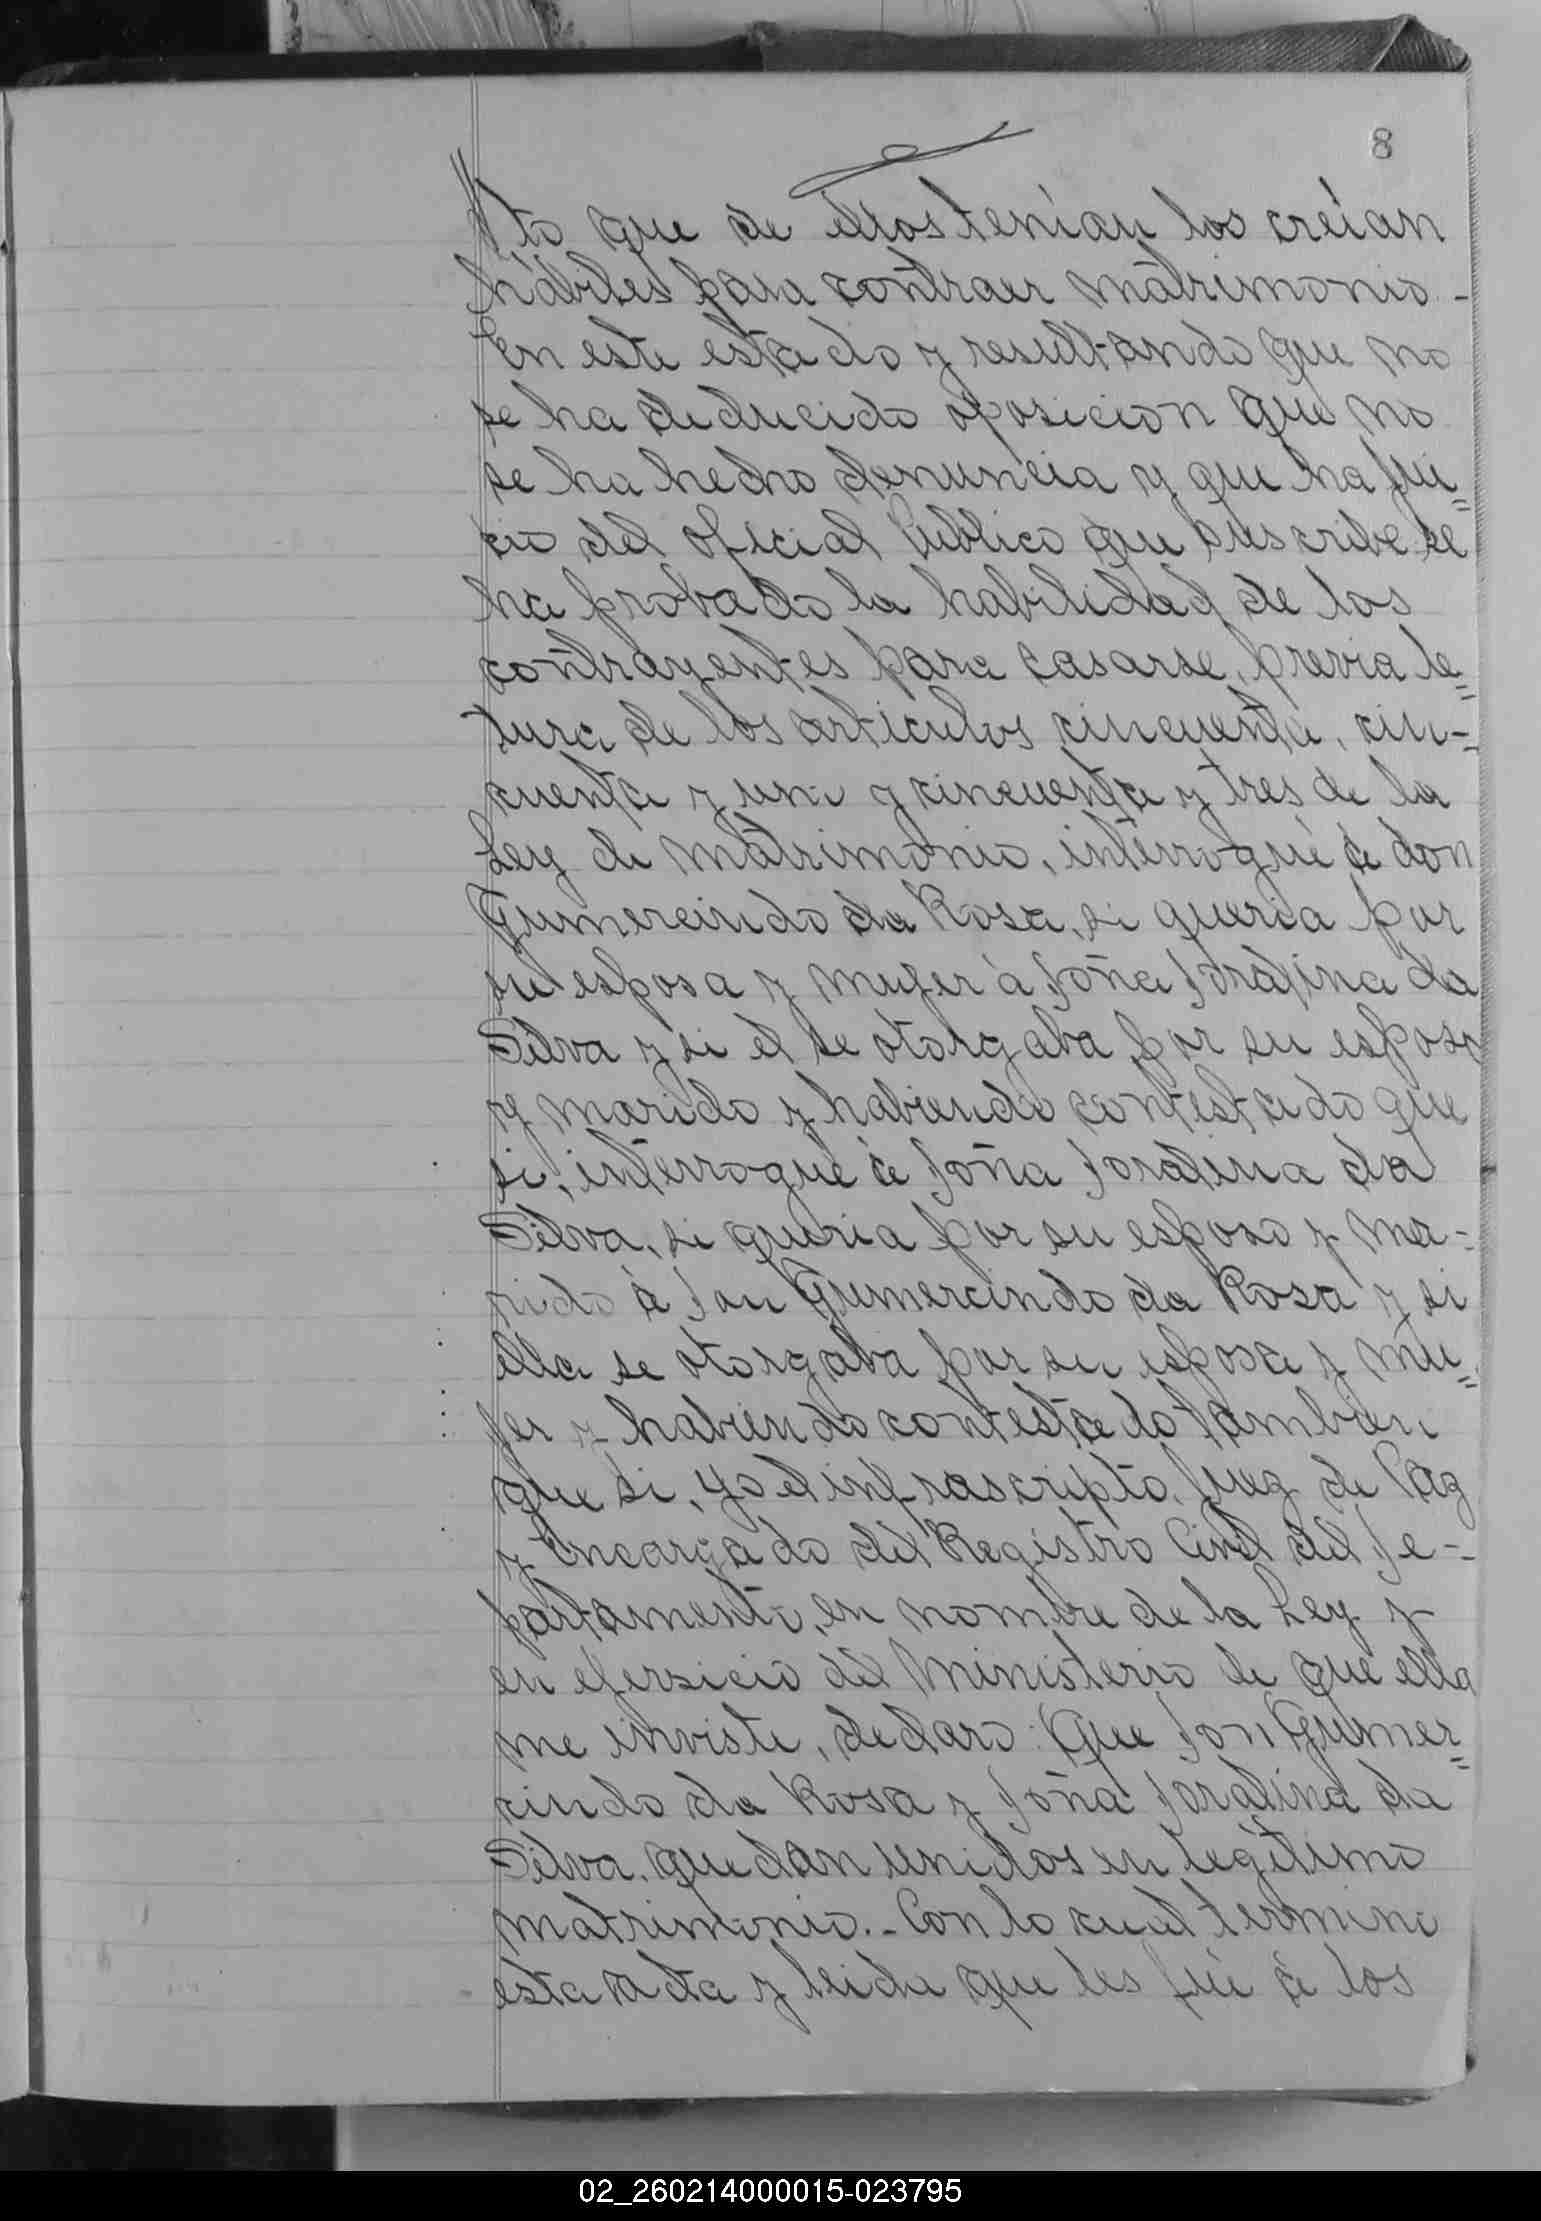 8
to que de ellos tenían los creían
hábiles para contraer matrimonio.-
En este estado y resultando que no
se ha deducido oposición que no
se ha hecho denuncia y que ha jui=
cio del oficial Público que suscribe se
ha probado la habilidad de los
contrayentes para casarse, previa le=
tura de los artículos cincuenta, cin-
cuenta y uno y cincuenta y tres de la
Ley de matrimonio, interrogué á don
Gumercindo da Rosa, si quería por
su esposa y mujer á Doña Joralina da
Silva y si el se otorgaba por su esposo
y marido y habiendo contestado que
si, interrogué á Doña Joralina da
Silva, si quería por su esposo y ma-
rido á Don Gumercindo da Rosa y si
ella se otorgaba por su esposa y mu=
jer y habiendo contestado tambien
que si, yo el infrascripto, Juez de Paz
y Encargado del Registro Civil del De-
partamento, en nombre de la Ley y
en ejersicio del Ministerio de que ella
me inviste, declaro: Que Don Gumer=
cindo da Rosa y Doña Joralina da
Silva, quedan unidos en legítimo
matrimonio.- Con lo cual termino
esta acta y leida que les fué á los
02_260214000015-023795